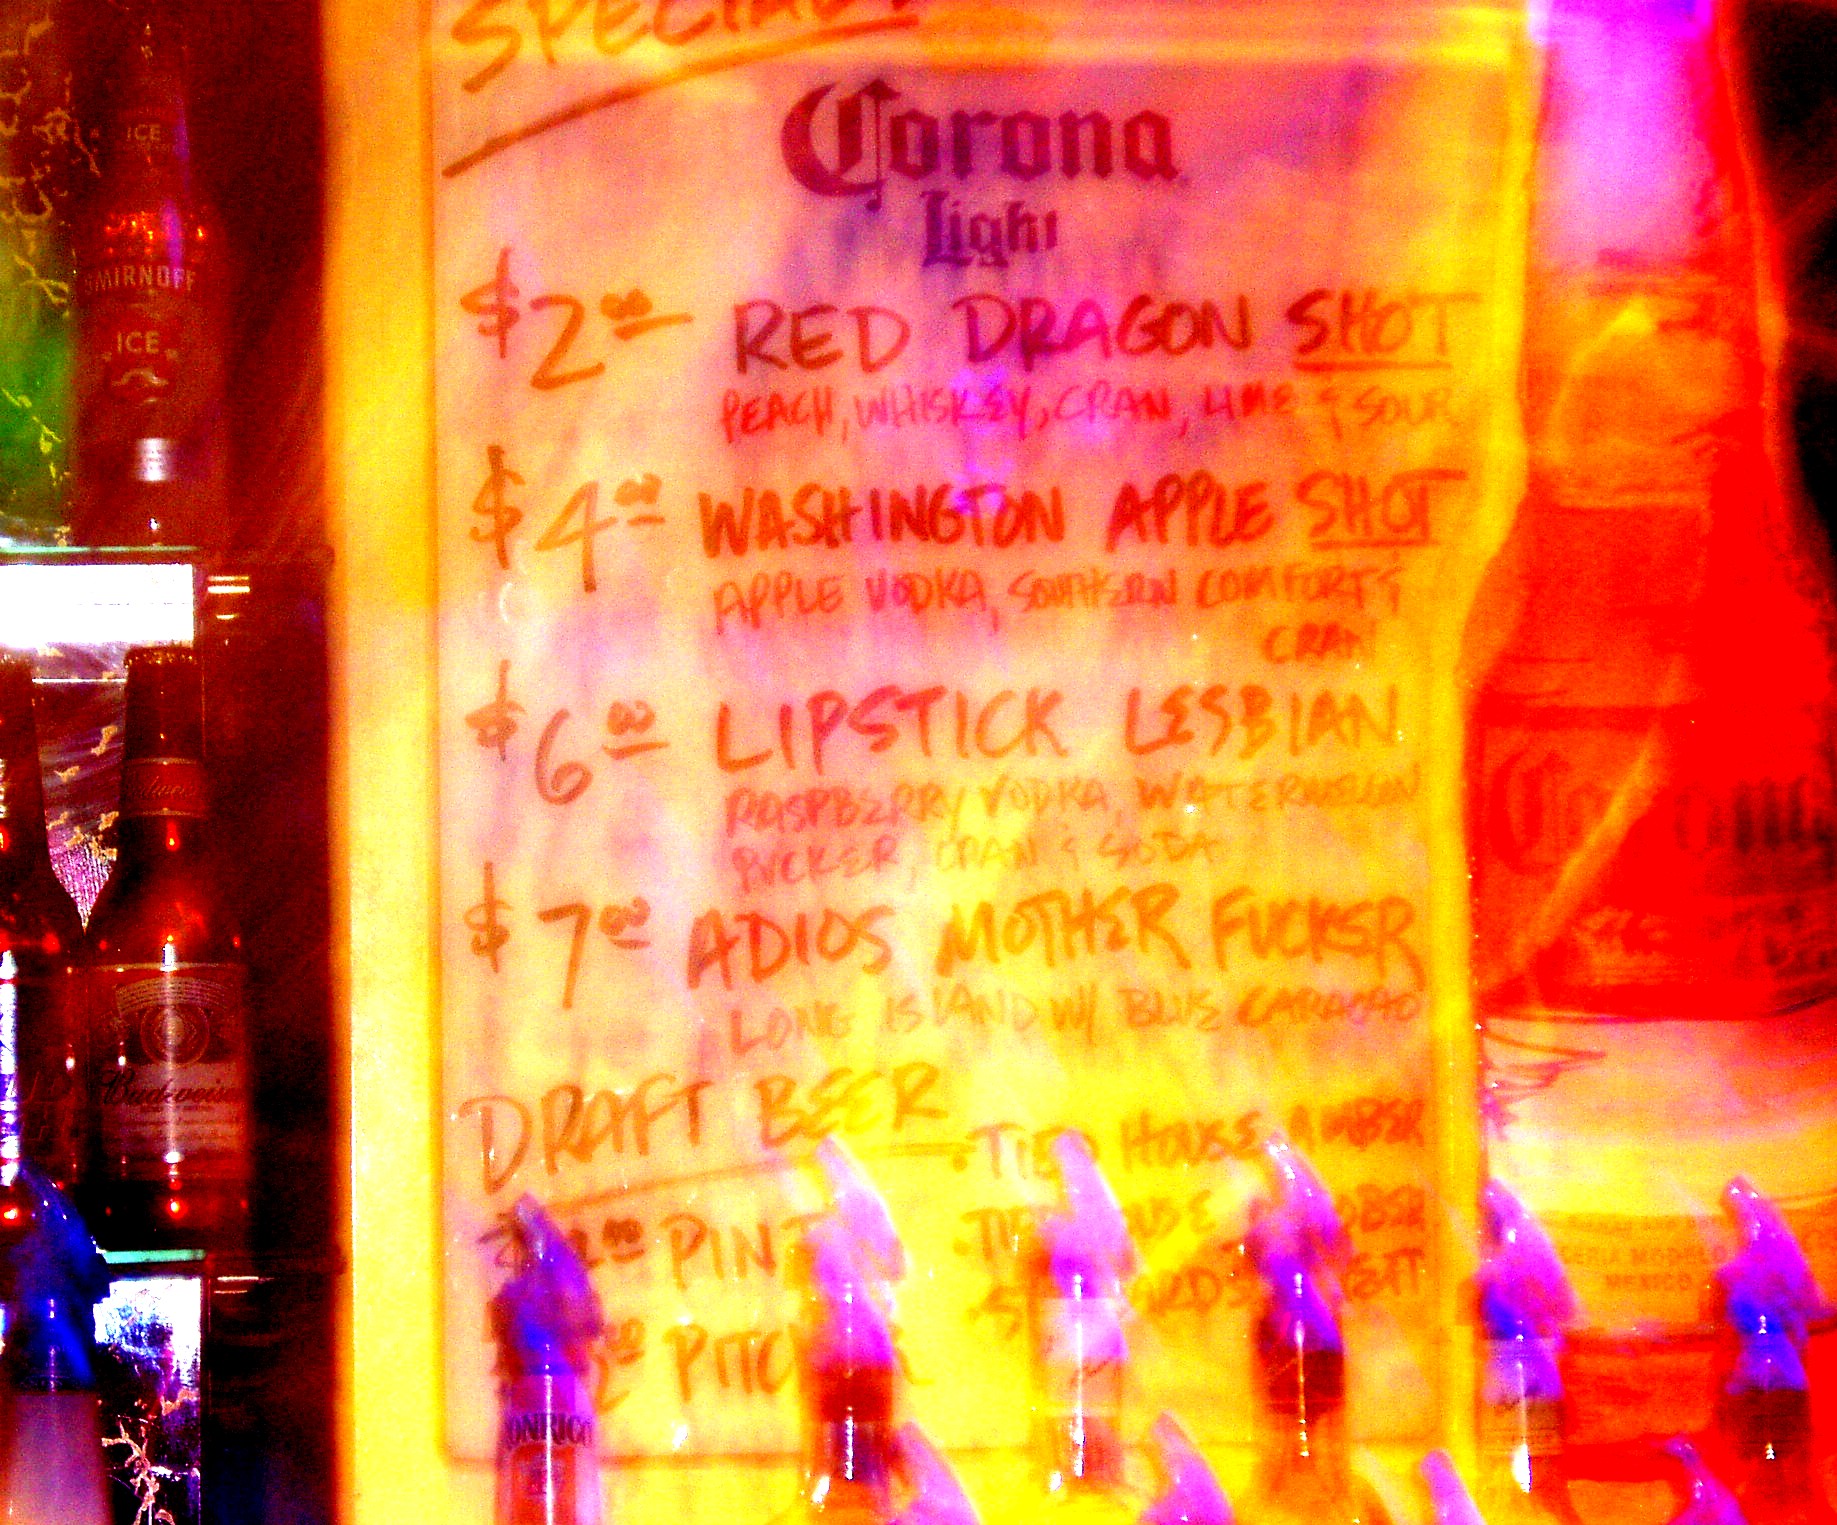 SPECIALS
Corona
Light
$2.00 RED DRAGON SHOT
PEACH, WHISKEY, CRAN, LIME & SOUR
$4.00 WASHINGTON APPLE SHOT
APPLE VODKA, SOUTHERN COMFORT &
CRAN
$6.00 LIPSTICK LESBIAN
RASPBERRY VODKA, WATERMELON
PUCKER, CRAN & SODA
$7.00 ADIOS MOTHER FUCKER
LONG ISLAND W/ BLUE CARACAO
DRAFT BEER
TIED HOUSE AMBER
PINT
PITCHER
ICE
SMIRNOFF
ICE
Budweiser
Budweiser
Corona
MODELO
MEXICO
RONRICO